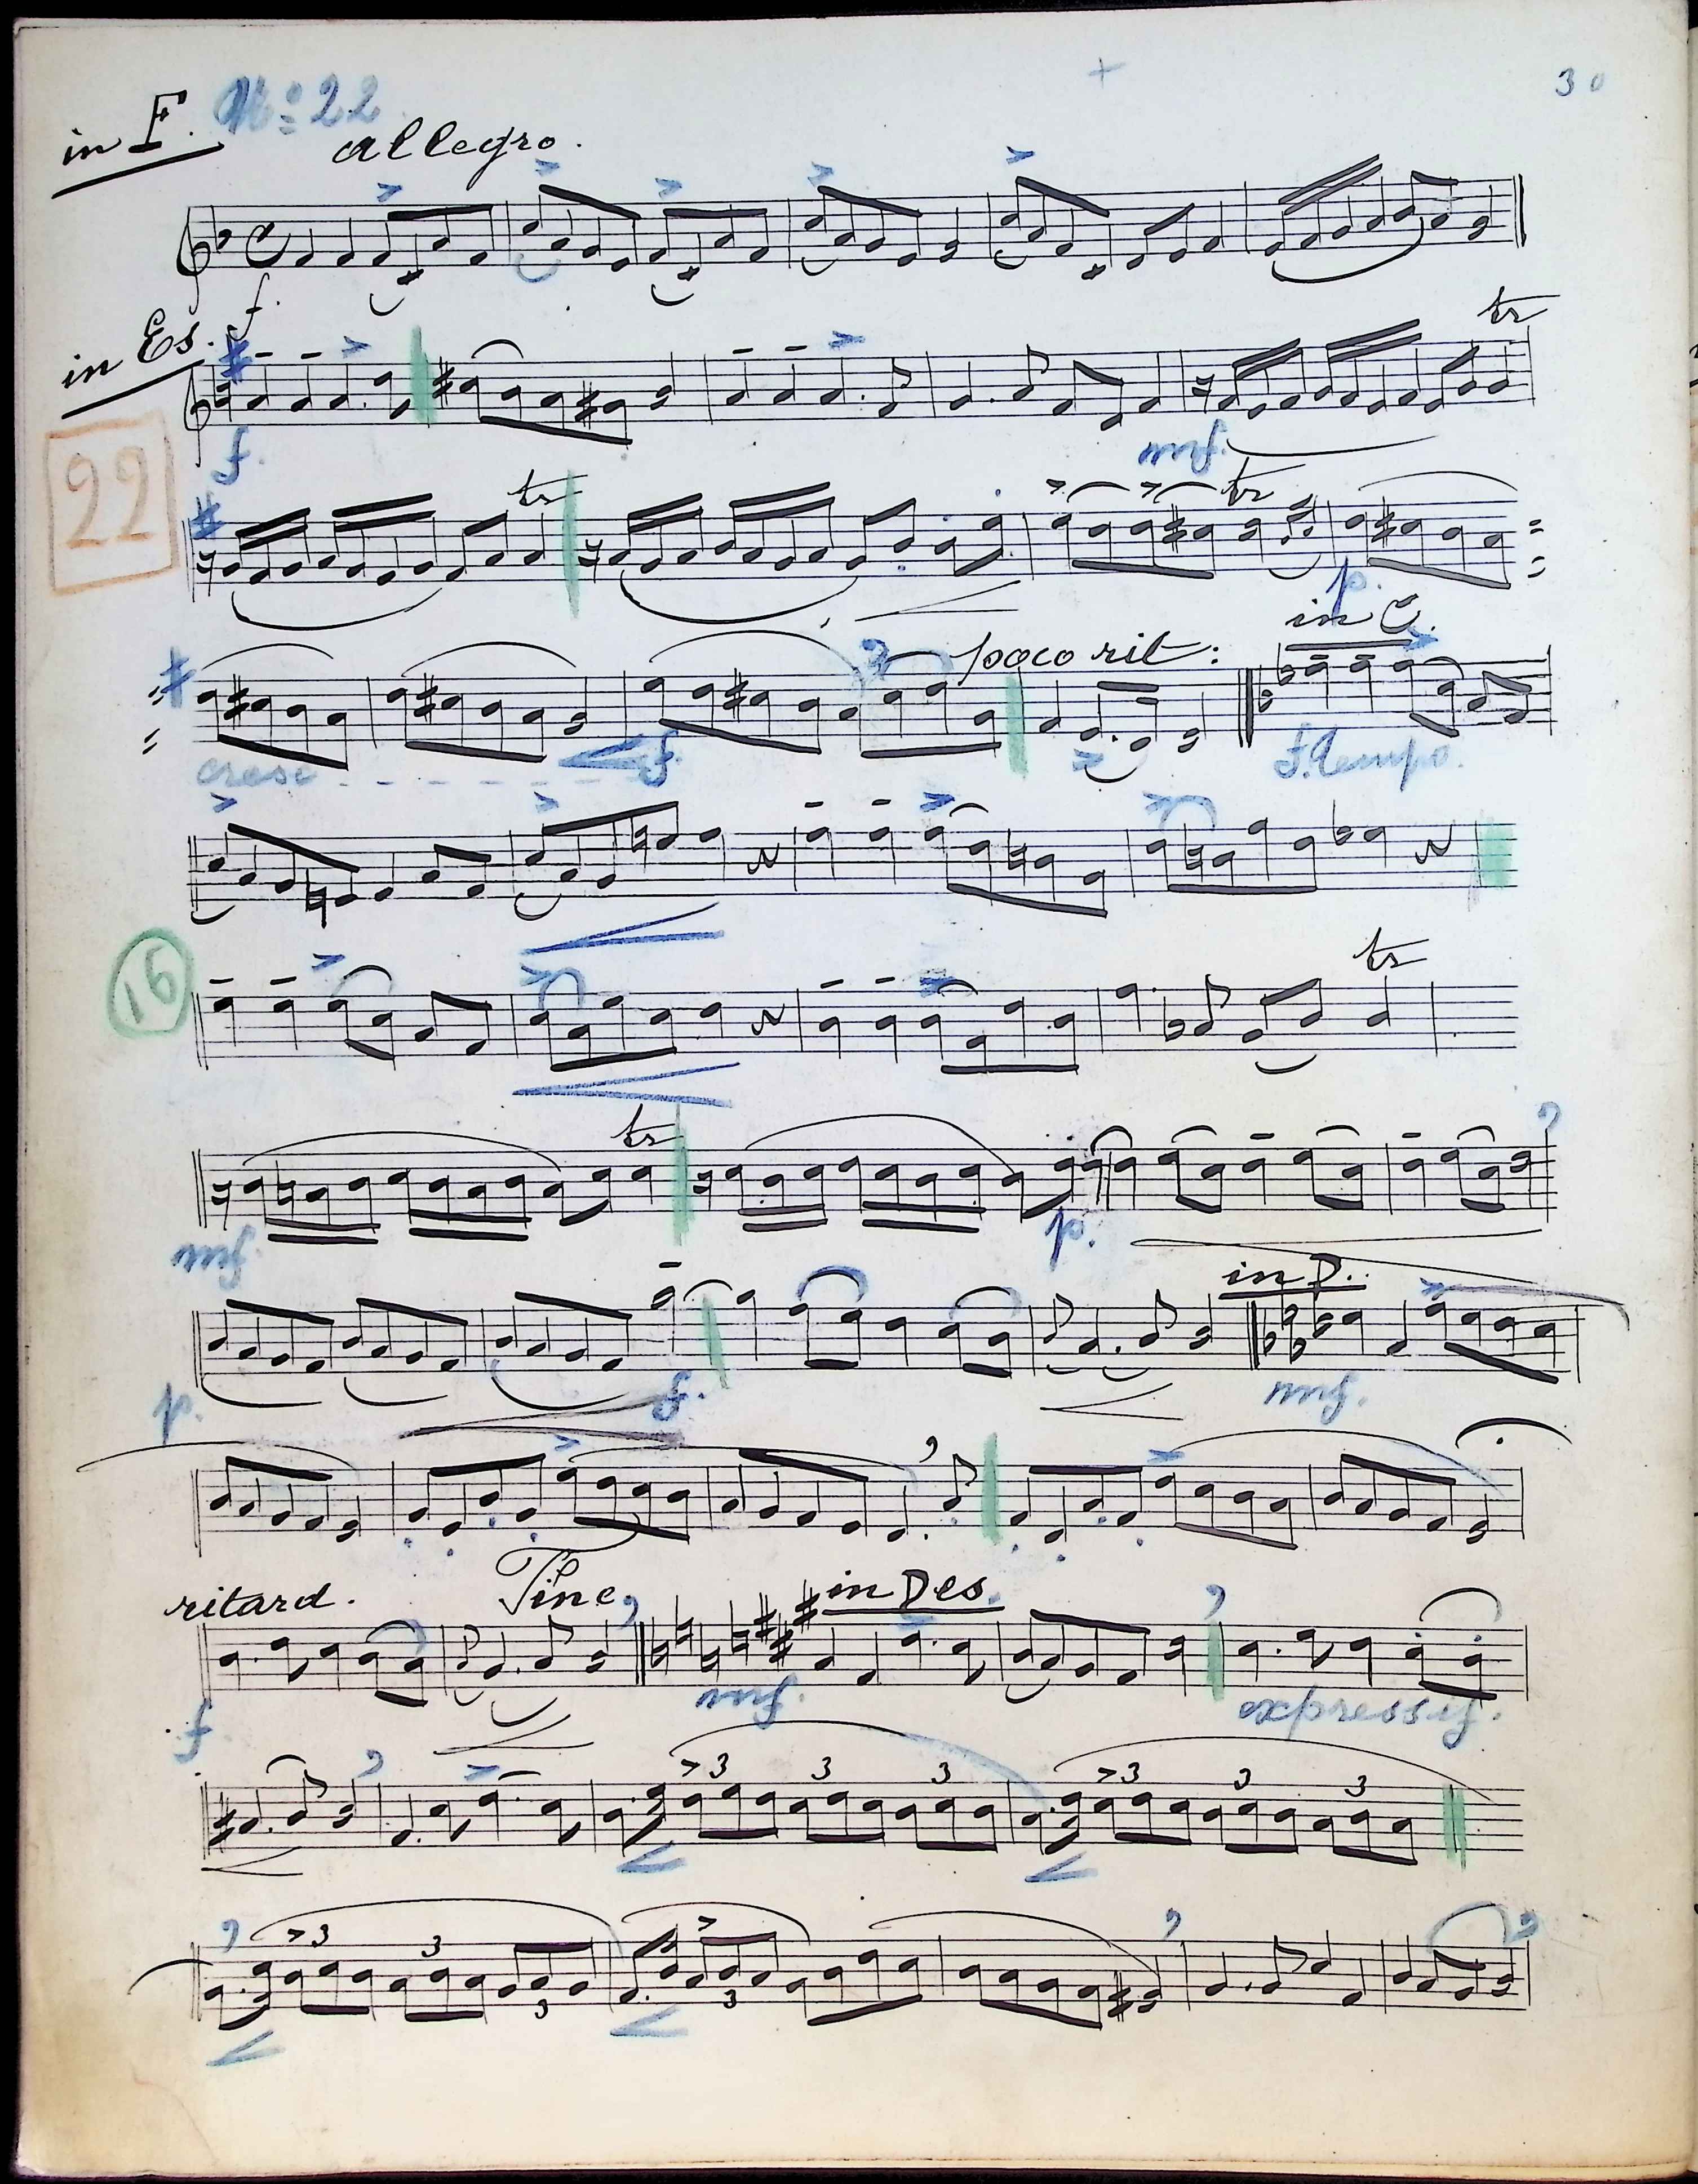 in F. No 22 30
allegro.
f.
in Es.
tr
f. mf.
22
tr tr
p.
in C.
poco rit:
cresc f. f. tempo.
16
tr
tr
mf. p.
in D.
p. f. mf.
ritard. Fine in Des.
f mf. expressif.
3 3 3 3 3 3
3 3
3 3